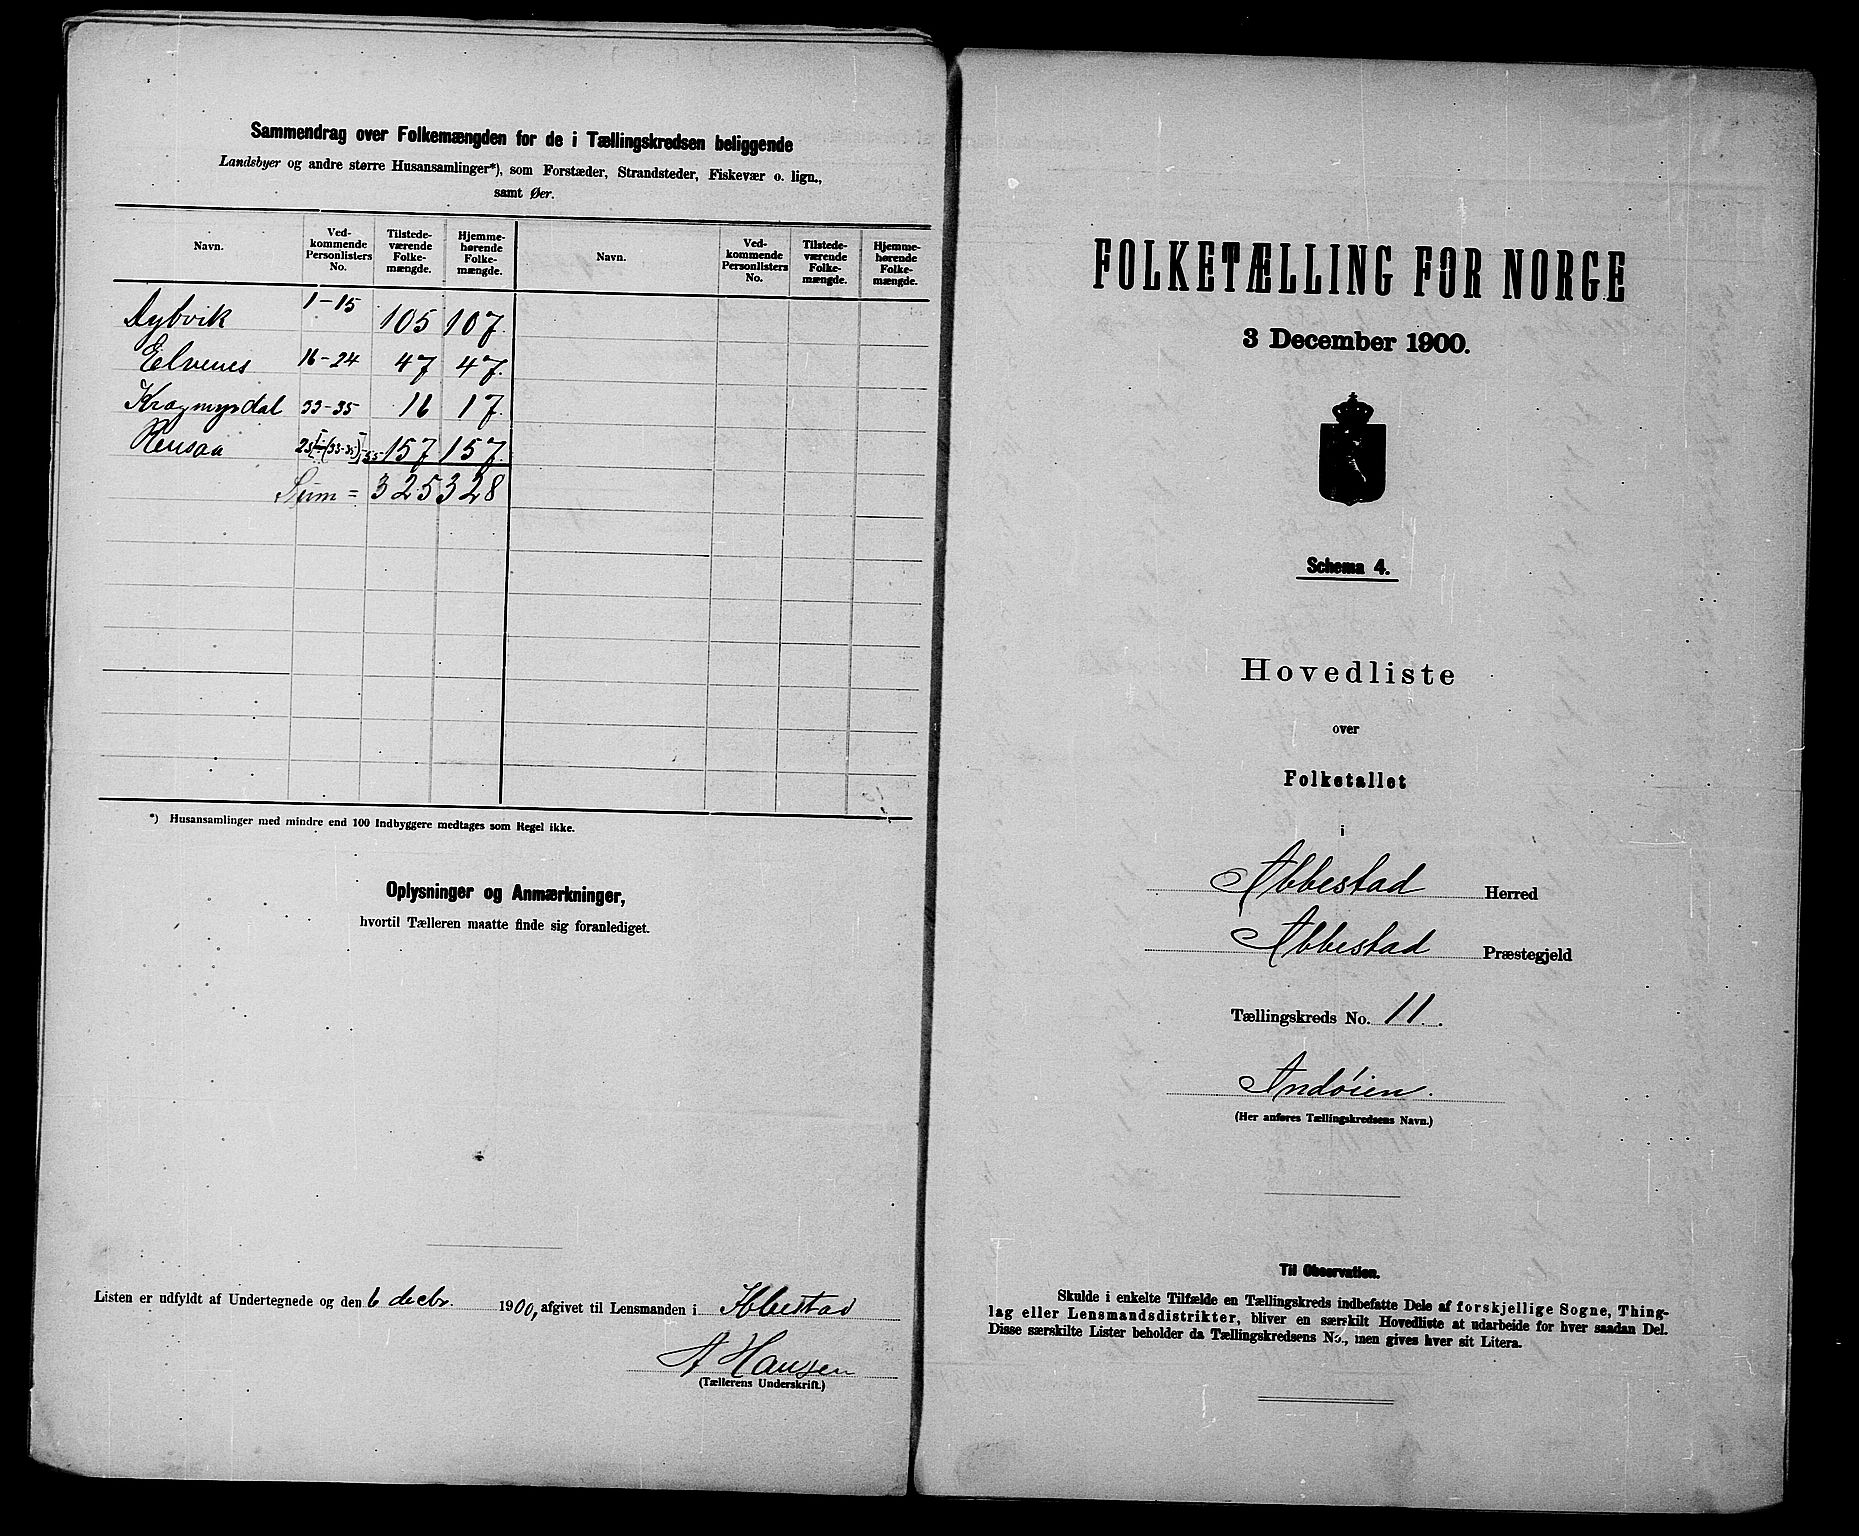 Sammendrag over Folkemængden for de i Tællingskredsen beliggende
Landsbyer og andre større Husansamlinger*), som Forstæder, Strandsteder, Fiskevær o. lign.,
samt Øer.
Navn. Ved-kommende Personlisters No. Tilstede-værende Folke-mængde. Hjemme-hørende Folke-mængde. Navn. Ved-kommende Personlisters No. Tilstede-værende Folke-mængde. Hjemme-hørende Folke-mængde.
Dybvik 1-15 105 107
Elvenes 16-24 47 47
Kragmyrdal 33-35 16 17
Rensaa 25[÷(33-35)]-55 157 157
Sum = 325 328
*) Husansamlinger med mindre end 100 Indbyggere medtages som Regel ikke.
Oplysninger og Anmærkninger,
hvortil Tælleren maatte finde sig foranlediget.
Listen er udfyldt af Undertegnede og den 6 decbr. 1900, afgivet til Lensmanden i Ibbestad
A Hansen
(Tællerens Underskrift.)
FOLKETÆLLING FOR NORGE
3 December 1900.
Schema 4.
Hovedliste
over
Folketallet
i
Ibbestad Herred
Ibbestad Præstegjeld
Tællingskreds No. 11.
Andøien.
(Her anføres Tællingskredsens Navn.)
Til Observation.
Skulde i enkelte Tilfælde en Tællingskreds indbefatte Dele af forskjellige Sogne, Thing-
lag eller Lensmandsdistrikter, bliver en særskilt Hovedliste at udarbeide for hver saadan Del.
Disse særskilte Lister beholder da Tællingskredsens No., men gives hver sit Litera.